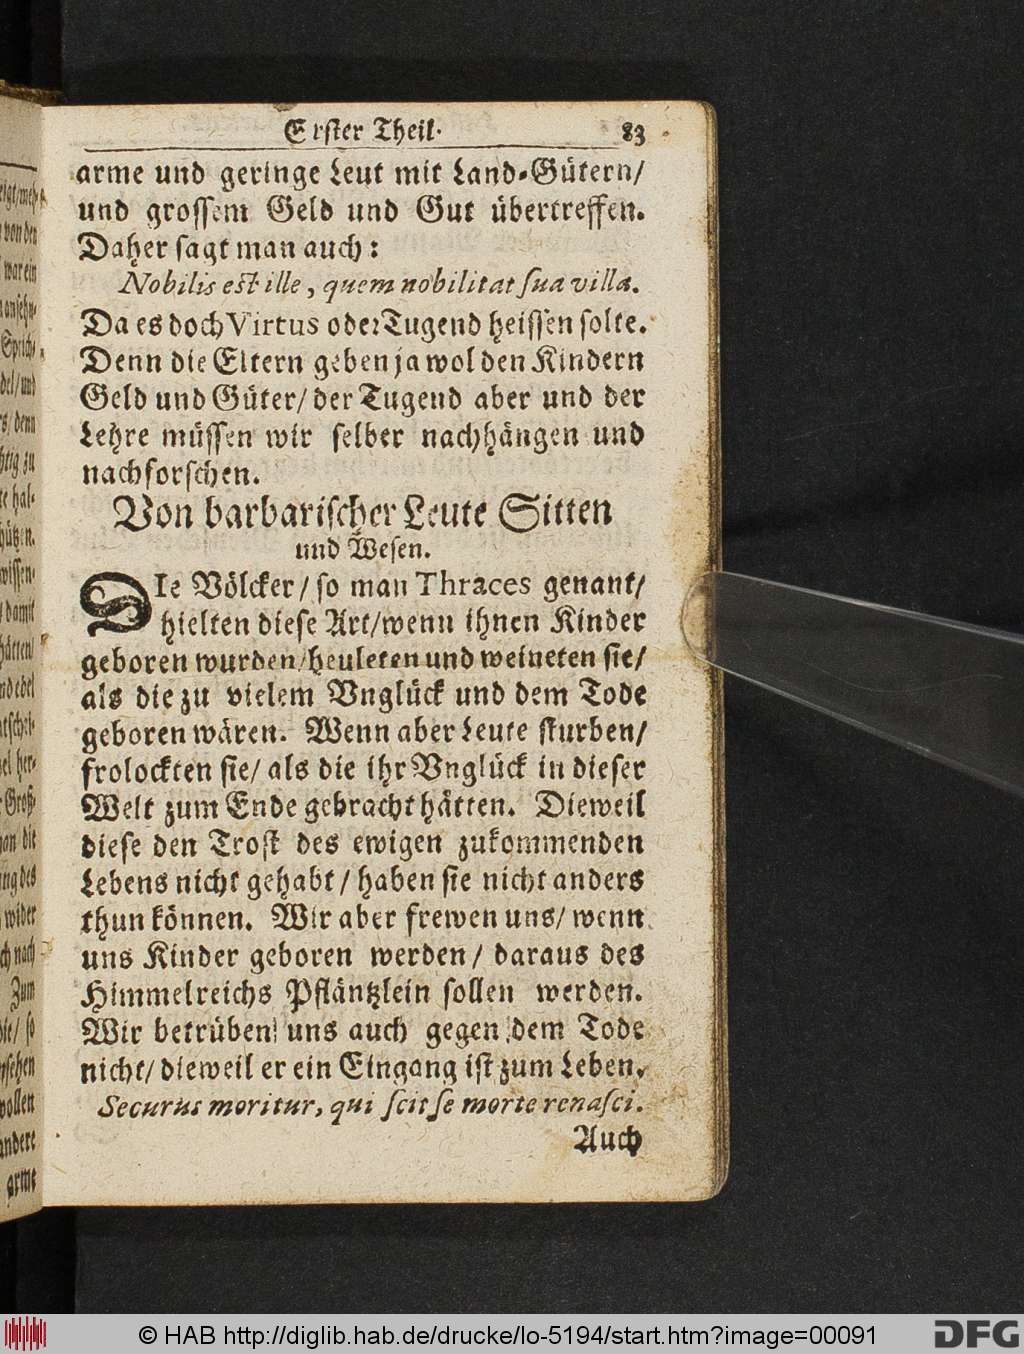 Erster Theil. 83
arme und geringe Leut mit Land-Gütern/
und grossem Geld und Gut übertreffen.
Daher sagt man auch:
Nobilis est ille, quem nobilitat sua villa.
Da es doch Virtus oder Tugend heissen solte.
Denn die Eltern geben ja wol den Kindern
Geld und Güter/ der Tugend aber und der
Lehre müssen wir selber nachhängen und
nachforschen.
Von barbarischer Leute Sitten
und Wesen.
DIe Völcker/ so man Thraces genant/
hielten diese Art/ wenn ihnen Kinder
geboren wurden/ heuleten und weineten sie/
als die zu vielem Vnglück und dem Tode
geboren wären. Wenn aber Leute sturben/
frolockten sie/ als die ihr Vnglück in dieser
Welt zum Ende gebracht hätten. Dieweil
diese den Trost des ewigen zukommenden
Lebens nicht gehabt/ haben sie nicht anders
thun können. Wir aber frewen uns/ wenn
uns Kinder geboren werden/ daraus des
Himmelreichs Pfläntzlein sollen werden.
Wir betrüben uns auch gegen dem Tode
nicht/ dieweil er ein Eingang ist zum Leben.
Securus moritur, qui scit se morte renasci.
Auch
© HAB http://diglib.hab.de/drucke/lo-5194/start.htm?image=00091
DFG